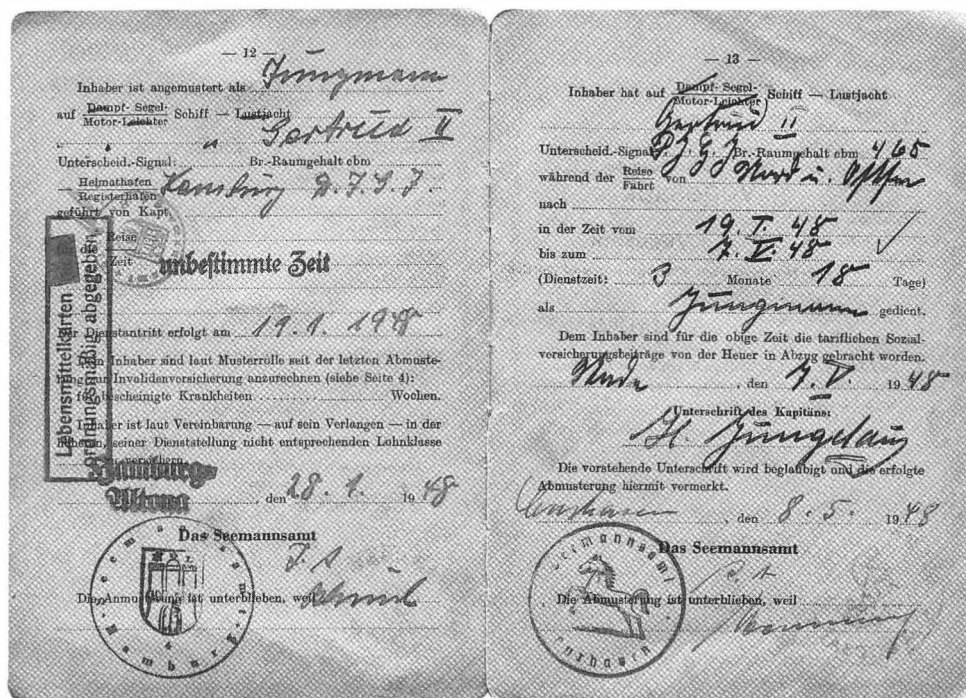 — 12 —
Inhaber ist angemustert als Jungmann
auf Dampf- Segel- Schiff — Lustjacht
Motor-Leichter
„ „ Gertrud II
Unterscheid.-Signal: Br.-Raumgehalt cbm
Heimathafen Hamburg D.J.G.J.
Registerhafen
geführt von Kapt.
für die Reise
Zeit unbestimmte Zeit
Der Dienstantritt erfolgt am 19.1. 1948
Dem Inhaber sind laut Musterrolle seit der letzten Abmuste-
rung zur Invalidenversicherung anzurechnen (siehe Seite 4):
für bescheinigte Krankheiten Wochen.
Inhaber ist laut Vereinbarung — auf sein Verlangen — in der
höheren, seiner Dienststellung nicht entsprechenden Lohnklasse
zu versichern.
Lebensmittelkarten
ordnungsmäßig abgegeben
Hamburg-
Altona, den 28. 1. 1948
Das Seemannsamt
J. A
Die Anmusterung ist unterblieben, weil
Seemannsamt Hamburg
4
— 13 —
Inhaber hat auf Dampf- Segel- Schiff — Lustjacht
Motor-Leichter
Gertrud II
Unterscheid.-Signal: D.J.G.J. Br.-Raumgehalt cbm 465
während der Reise von Nord u. Ostsee
Fahrt
nach
in der Zeit vom 19. I. 48
bis zum 7. V. 48
(Dienstzeit: 3 Monate 18 Tage)
als Jungmann gedient.
Dem Inhaber sind für die obige Zeit die tariflichen Sozial-
versicherungsbeiträge von der Heuer in Abzug gebracht worden.
, den 7. V. 1948
Unterschrift des Kapitäns:
H. Jungclaus
Die vorstehende Unterschrift wird beglaubigt und die erfolgte
Abmusterung hiermit vermerkt.
Cuxhaven, den 8. 5. 1948
Das Seemannsamt
J. A
Die Abmusterung ist unterblieben, weil
Seemannsamt Cuxhaven